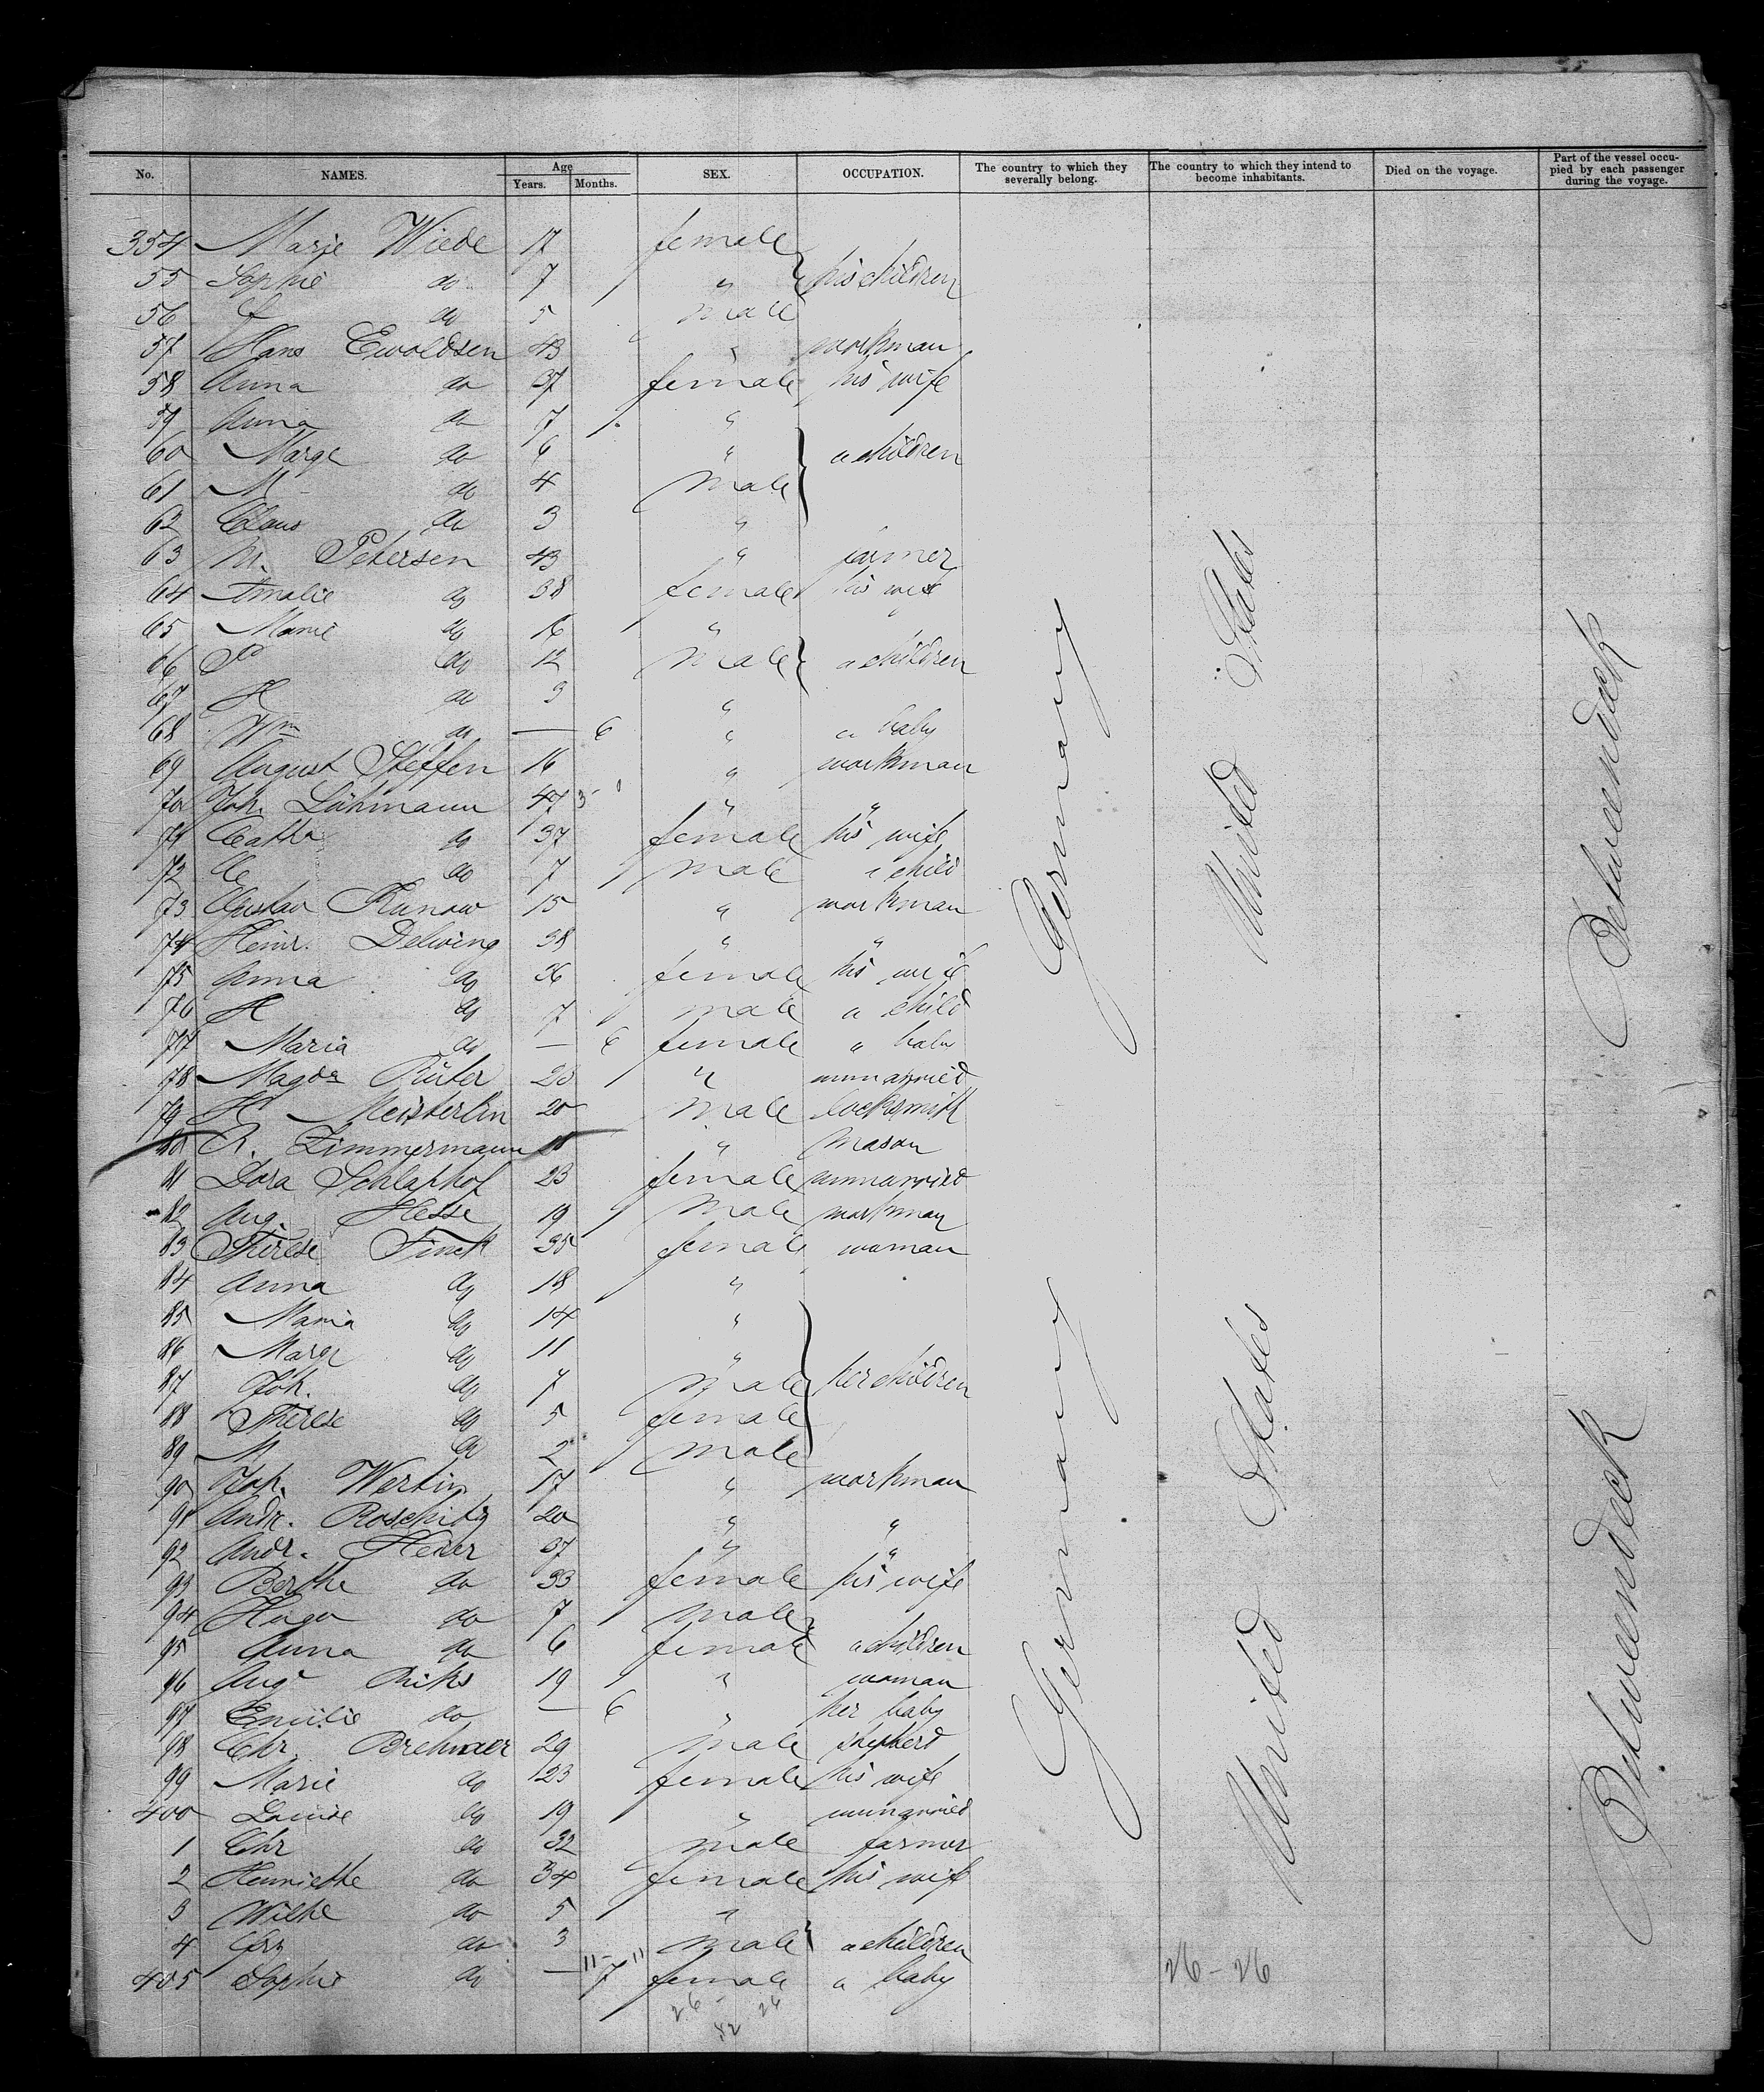 No. NAMES. Age Years. Months. SEX. OCCUPATION. The country to which they severally belong. The country to which they intend to become inhabitants. Died on the voyage. Part of the vessel occupied by each passenger during the voyage.
354 Marje Wiebe 17 female
55 Sophie do 7 " his children
56 do 5 male
57 Hans Ewoldsen 43 " workman
58 Anna do 37 female his wife
59 Anna do 7 "
60 Marge do 6 " " children
61 M do 4 male
62 Claus do 3 "
63 M. Petersen 43 " farmer
64 Amalie do 38 female his wife
65 Marie do 16 "
66 do 12 male " children
67 H do 3 "
68 Wm do — 6 " " baby
69 August Steffen 16 " workman
70 Joh. Lühmann 47 " "
71 Catha do 37 female his wife
72 C do 7 male " child
73 Gustav Kunow 15 " workman
74 Heinr. Delwing 38 " "
75 Anna do 36 female his wife
76 H do 7 male " child
77 Maria do — 6 female " baby
78 Magda Rüter 23 " unmarried
79 H Meisterlin 20 male locksmith
80 R. Zimmermann " mason
81 Dora Schlaphof 23 female unmarried
82 Aug. Hesse 19 male workman
83 Therese Finck 35 female woman
84 Anna do 18 "
85 Maria do 14 "
86 Marg do 11 "
87 Joh. do 7 male her children
88 Therese do 5 female
89 M do 2 male
90 Joh. Wertin 17 " workman
91 Andr. Roschitz 20 " "
92 Andr. Hener 37 " "
93 Berthe do 33 female his wife
94 Hugo do 7 male
95 Anna do 6 female " children
96 Aug Riks 19 " woman
97 Emilie do — 6 " her baby
98 Chr. Brehmer 29 male shepherd
99 Marie do 23 female his wife
400 Louise do 19 " unmarried
1 Chr do 32 male farmer
2 Henriette do 34 female his wife
3 Wilhe do 5 "
4 do 3 male " children
405 Sophie do — 7 female " baby
Germany United States Betweendeck
Germany United States Betweendeck
26 - 26
26 - 26
52